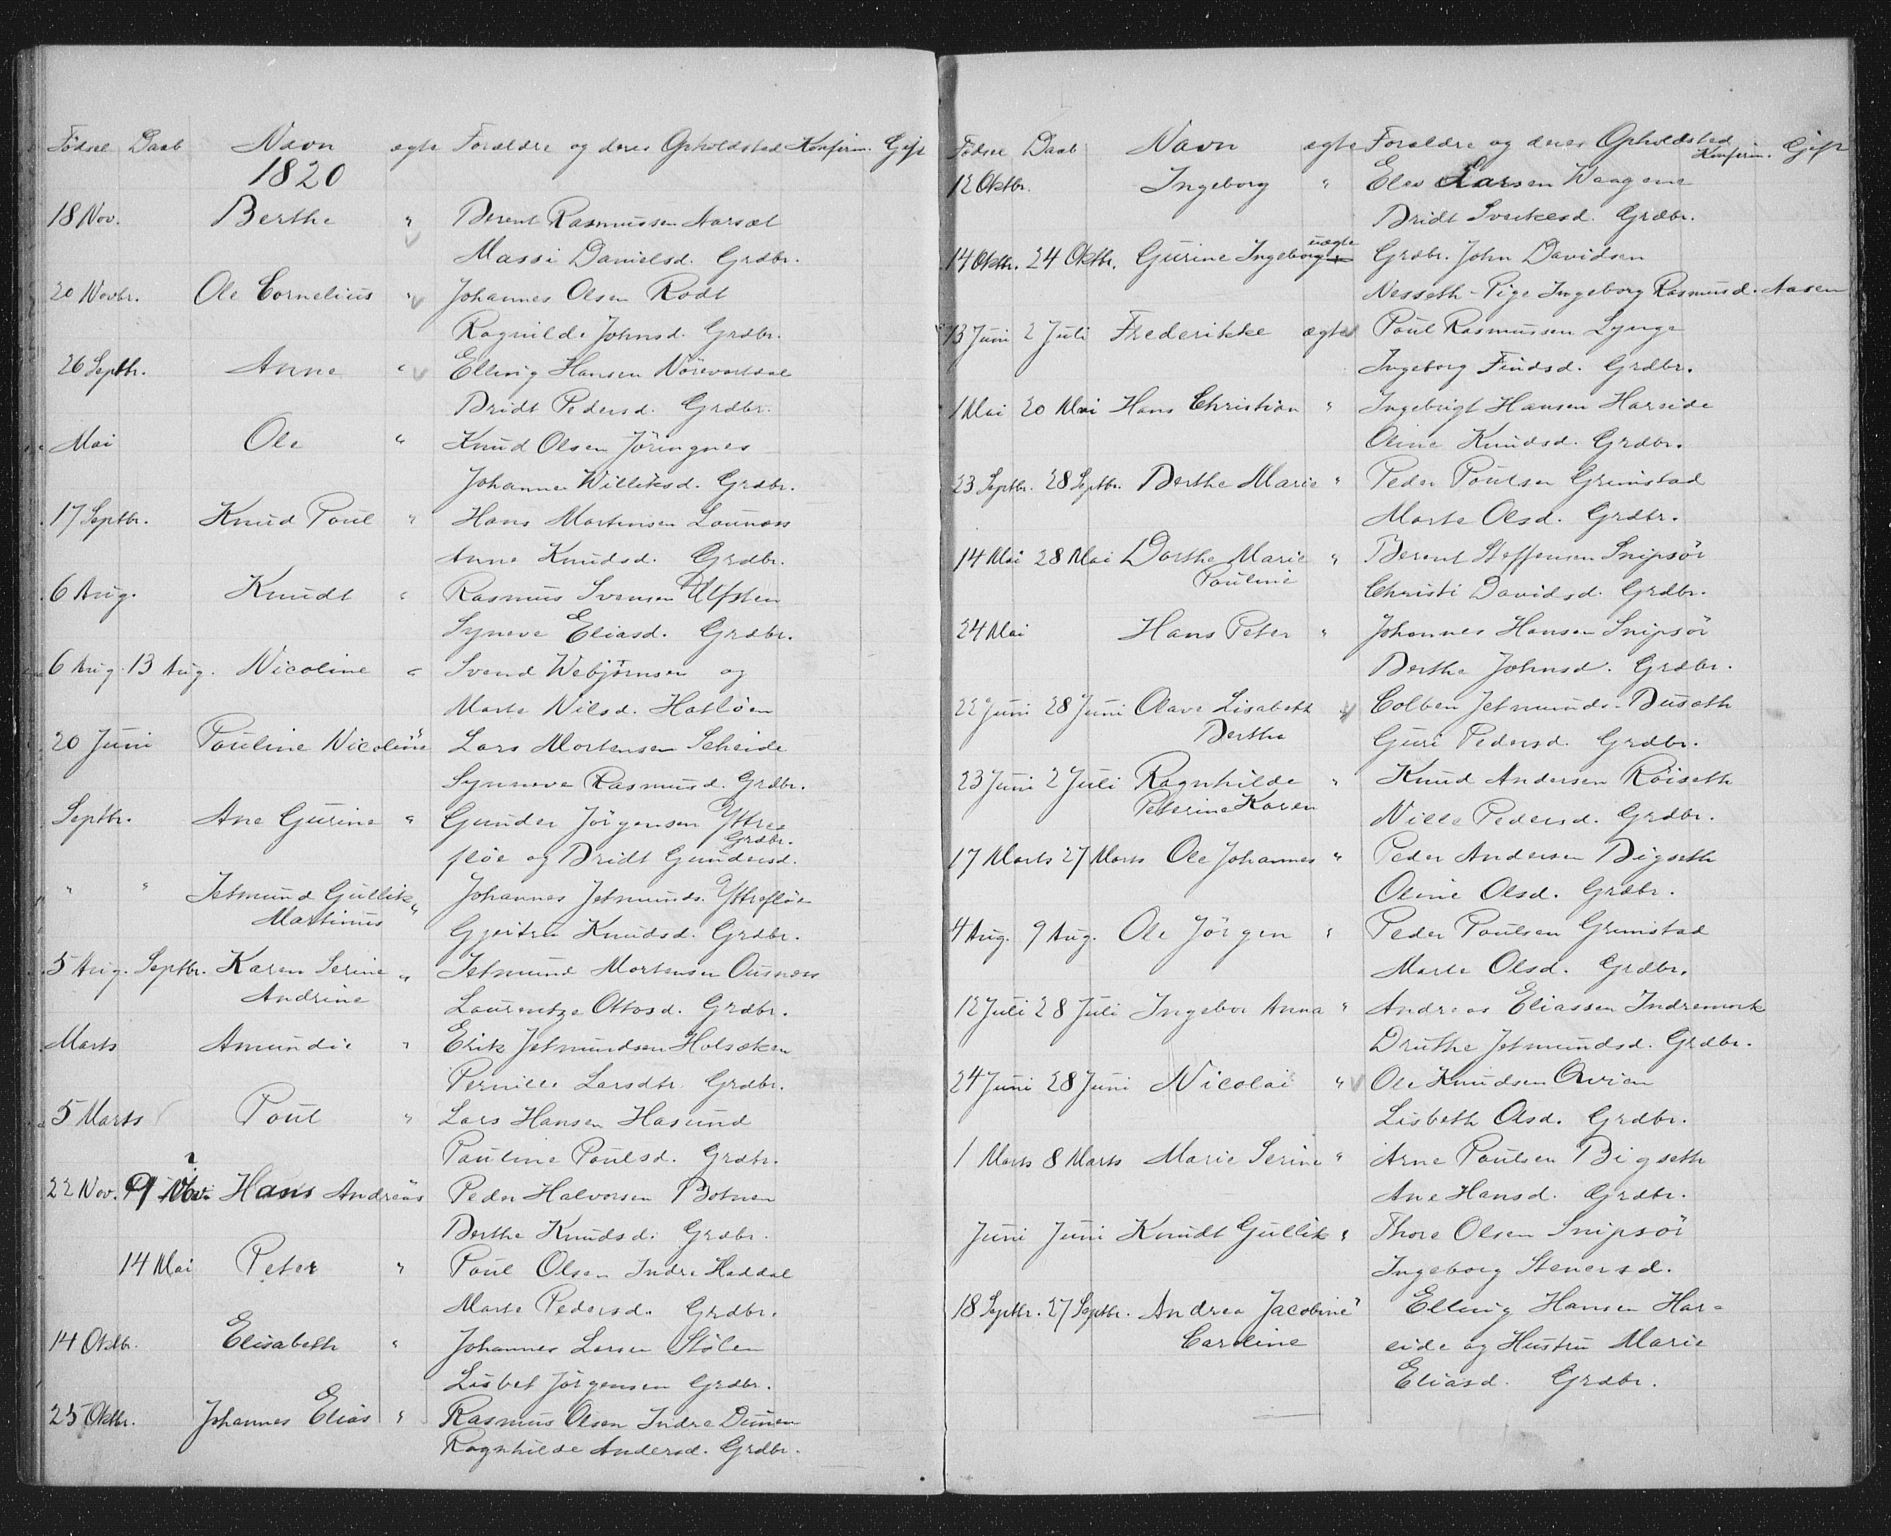 Fødsel Daab Navn ægte Forældre og deres Opholdsted Konfirm. Gift
1820
18 Nov. Berthe " Berent Rasmussen Aarsæt
Massi Danielsd. Grdbr.
20 Novbr. Ole Cornelius " Johannes Olsen Rødt
Ragnilde Johnsd. Grdbr.
26 Septbr. Anne " Elling Hansen
Bridt Pedersd. Grdbr.
Mai Ole " Knud Olsen Jöringnes
Johanne Williksd. Grdbr.
17 Septbr. Knud Poul " Hans Mortensen
Anne Knudsd. Grdbr.
6 Aug. Knudt " Rasmus Svensen Ulfsten
Syneve Eliasd. Grdbr.
6 Aug. 13 Aug. Nicoline " Svend Webjørnsen og
Marte Nilsd. Hatløen
20 Juni Pauline Nicoline " Lars Mortensen Scheide
Synneve Rasmusd. Grdbr.
Septbr. Ane Gurine " Gunder Jørgensen Yttre=
Grdbr.
fløe og Bridt Gundersd.
" " Jetmund Gullik " Johannes Jetmunds. Yttrefløe
Martinus
Gjertru Knudsd. Grdbr.
5 Aug. Septbr. Karen Serine " Jetmund Mortensen Ousnæs
Andrine
Laurentze Ottosd. Grdbr.
Marts Amundie " Erik Jetmundsen Holsæker
Pernille Larsdtr. Grdbr.
5 Marts Poul " Lars Hansen Hasund
Pauline Poulsd. Grdbr.
22 Nov. 9 Nov. Hans Andreas Peder Halvorsen Botnen
Berthe Knudsd. Grdbr.
14 Mai Peter " Poul Olsen Indre Haddal
Marte Pedersd. Grdbr.
14 Oktbr. Elisabeth " Johannes Larsen Stølen
Lisbet Jørgensen Grdbr.
25 Oktbr. Johannes Elias " Rasmus Olsen Indre Dimen
Ragnhilde Andersd. Grdbr.
Fødsel Daab Navn ægte Forældre og deres Opholdsted Konfirm. Gift
12 Oktbr. Ingeborg " Elev Larsen Waagene
Bridt Sverkesd. Grdbr.
uægte
14 Oktbr. 24 Oktbr. Gurine Ingeborg Grdbr. John Davidsen
Nesseth - Pige Ingeborg Rasmusd. Aasen
13 Juni 2 Juli Frederikke ægte Poul Rasmussen Lynge
Ingeborg Findsd. Grdbr.
1 Mai 20 Mai Hans Christian " Ingebrigt Hansen Hareide
Oline Knudsd. Grdbr.
23 Septbr. 28 Septbr. Berthe Marie " Peder Poulsen Grimstad
Marte Olsd. Grdbr.
14 Mai 28 Mai Dorthe Marie " Berent Steffensen Snipsør
Pauline
Christi Davidsd. Grdbr.
24 Mai Hans Peter " Johannes Hansen Snipsør
Berthe Johnsd. Grdbr.
22 Juni 28 Juni Olave Lisabeth " Colben Jetmunds. Buseth
Berthe
Guri Pedersd. Grdbr.
23 Juni 2 Juli Ragnhilde " Knud Andersen Röiseth
Peterine Karen
Nille Pedersd. Grdbr.
17 Marts 27 Marts Ole Johannes " Peder Andersen Bigseth
Oline Olsd. Grdbr.
4 Aug. 9 Aug. Ole Jørgen " Peder Poulsen Grimstad
Marte Olsd. Grdbr.
12 Juli 28 Juli Ingebor Anna " Andreas Eliassen Indremork
Druthe Jetmundsd. Grdbr.
24 Juni 28 Juni Nicolai " Ole Knudsen Øvien
Lisbeth Olsd. Grdbr.
1 Marts 8 Marts Marie Serine " Arne Poulsen Bigseth
Ane Hansd. Grdbr.
Juni Juni Knudt Gullik " Thore Olsen Snipsør
Ingeborg Stenersd.
18 Septbr. 27 Septbr. Andrea Jacobine " Elling Hansen Har=
Caroline eide og Hustru Marie
Eliasd. Grdbr.